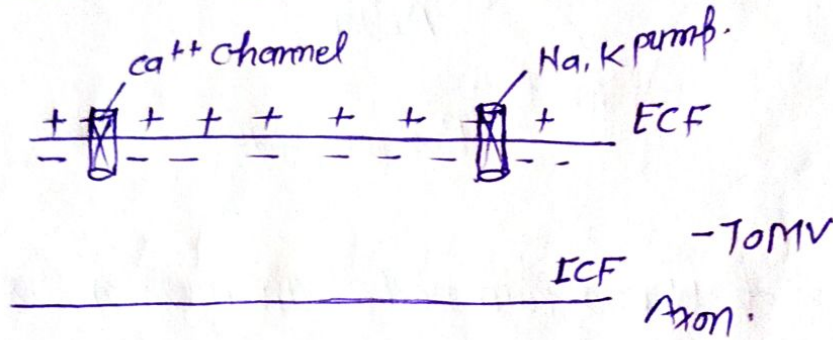 Ca++ channel
Na, K pump.
+ + + + + + +
ECF
- - - - - - - - - -
-70MV
ICF
Axon.